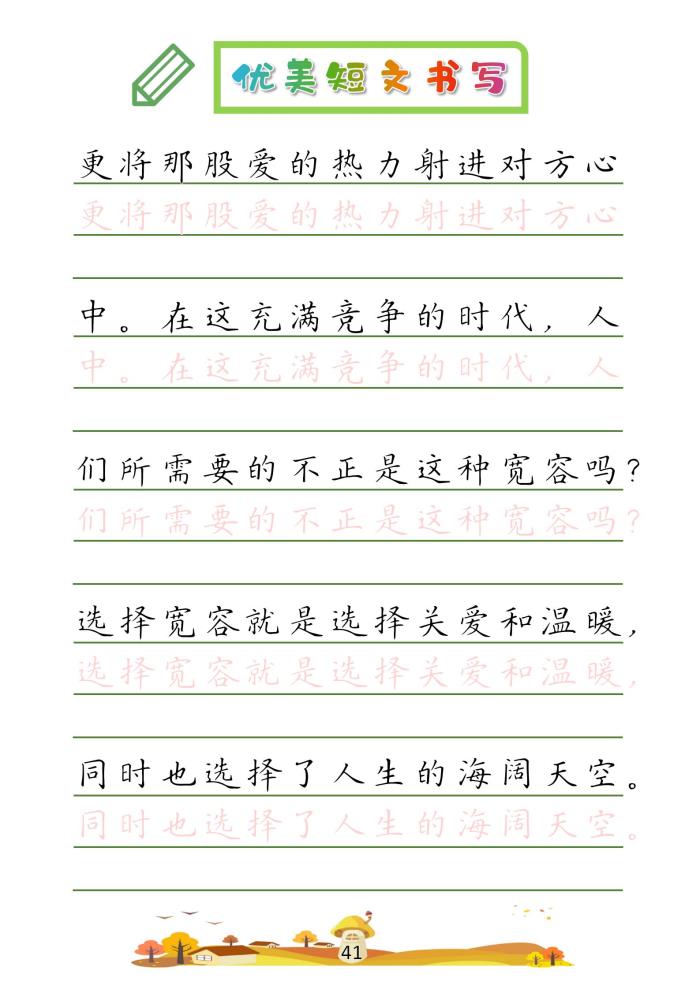 优美短文书写
更将那股爱的热力射进对方心
更将那股爱的热力射进对方心
中。在这充满竞争的时代，人
中。在这充满竞争的时代，人
们所需要的不正是这种宽容吗？
们所需要的不正是这种宽容吗？
选择宽容就是选择关爱和温暖，
选择宽容就是选择关爱和温暖，
同时也选择了人生的海阔天空。
同时也选择了人生的海阔天空。
41